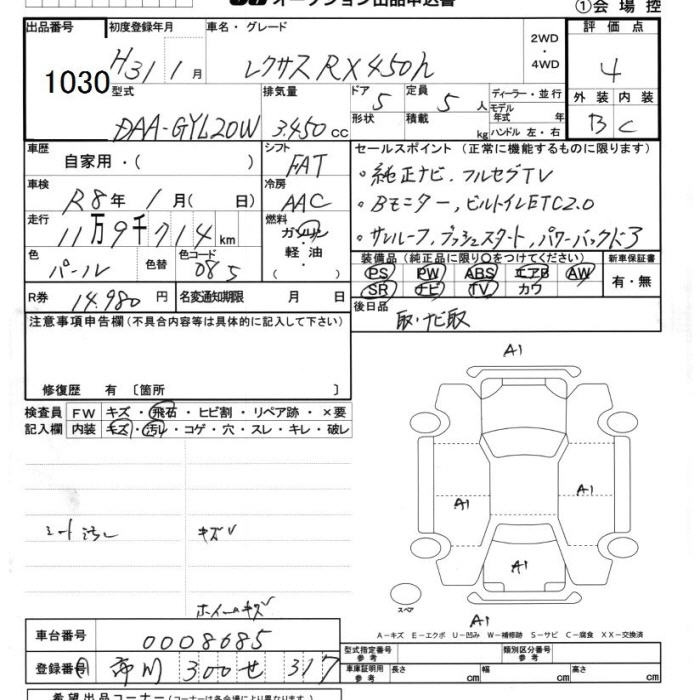 オークション出品申込書 ①会場控
出品番号 初度登録年月 車名・グレード 2WD ・ 4WD 評価点
1030 H31 1月 レクサス RX450h 4
型式 排気量 ドア 定員 ディーラー・並行 外装 内装
DAA-GYL20W 3.450cc 5 5人 モデル年式 年 B C
形状 積載 kg ハンドル 左・右
車歴 自家用・( ) シフト FAT セールスポイント (正常に機能するものに限ります)
車検 R8年 1月( 日) 冷房 AAC ・純正ナビ、フルセグTV
・Bモニター、ビルトインETC2.0
走行 11万9千714km 燃料 ガソリン ・サンルーフ、プッシュスタート、パワーバックドア
色 パール 色替 色コード 085 軽油・( ) 装備品(純正品に限り○をつけてください) 新車保証書
PS PW ABS エアB AW 有・無
SR ナビ TV カワ
R券 14,980円 名変通知期限 月 日 後日品
取・ナビ取
注意事項申告欄(不具合内容等は具体的に記入して下さい)
A1
修復歴 有〔箇所 〕
検査員 FW キズ・飛石・ヒビ割・リペア跡・×要
記入欄 内装 キズ・汚レ・コゲ・穴・スレ・キレ・破レ
A1 A1
シート汚レ キズV
A1
ホイールキズ
スペア A1
A-キズ E-エクボ U-凹み W-補修跡 S-サビ C-腐食 XX-交換済
車台番号 0008685
型式指定番号 参考 類別区分番号 参考
登録番号 300 せ 317 車庫証明用 参考 長さ cm 幅 cm 高さ cm
希望出品コーナー(コーナーは各会場により異なります。)